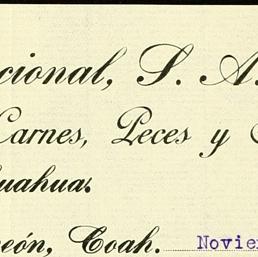 cional, S. A.
Carnes, Peces y
uahua.
eón, Coah. Novie